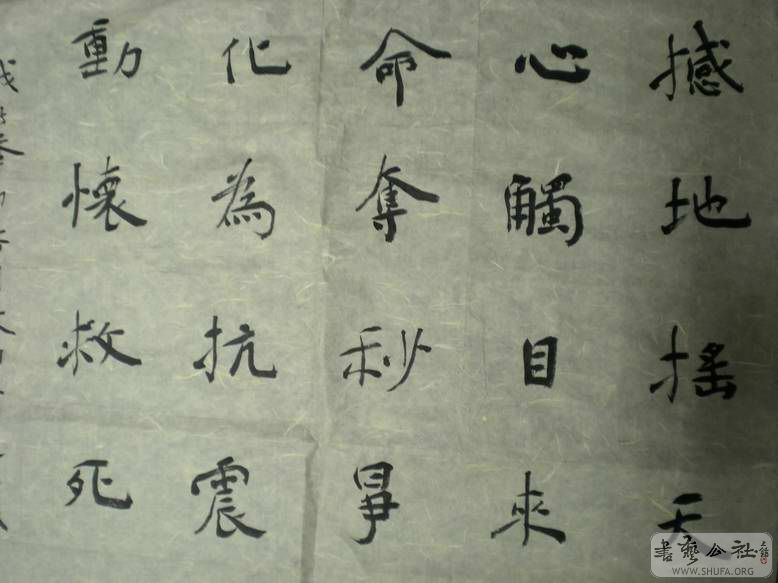 撼地搖天
心觸目來
命奪秒
化為抗震
動懷救死
書藝公社
WWW.SHUFA.ORG